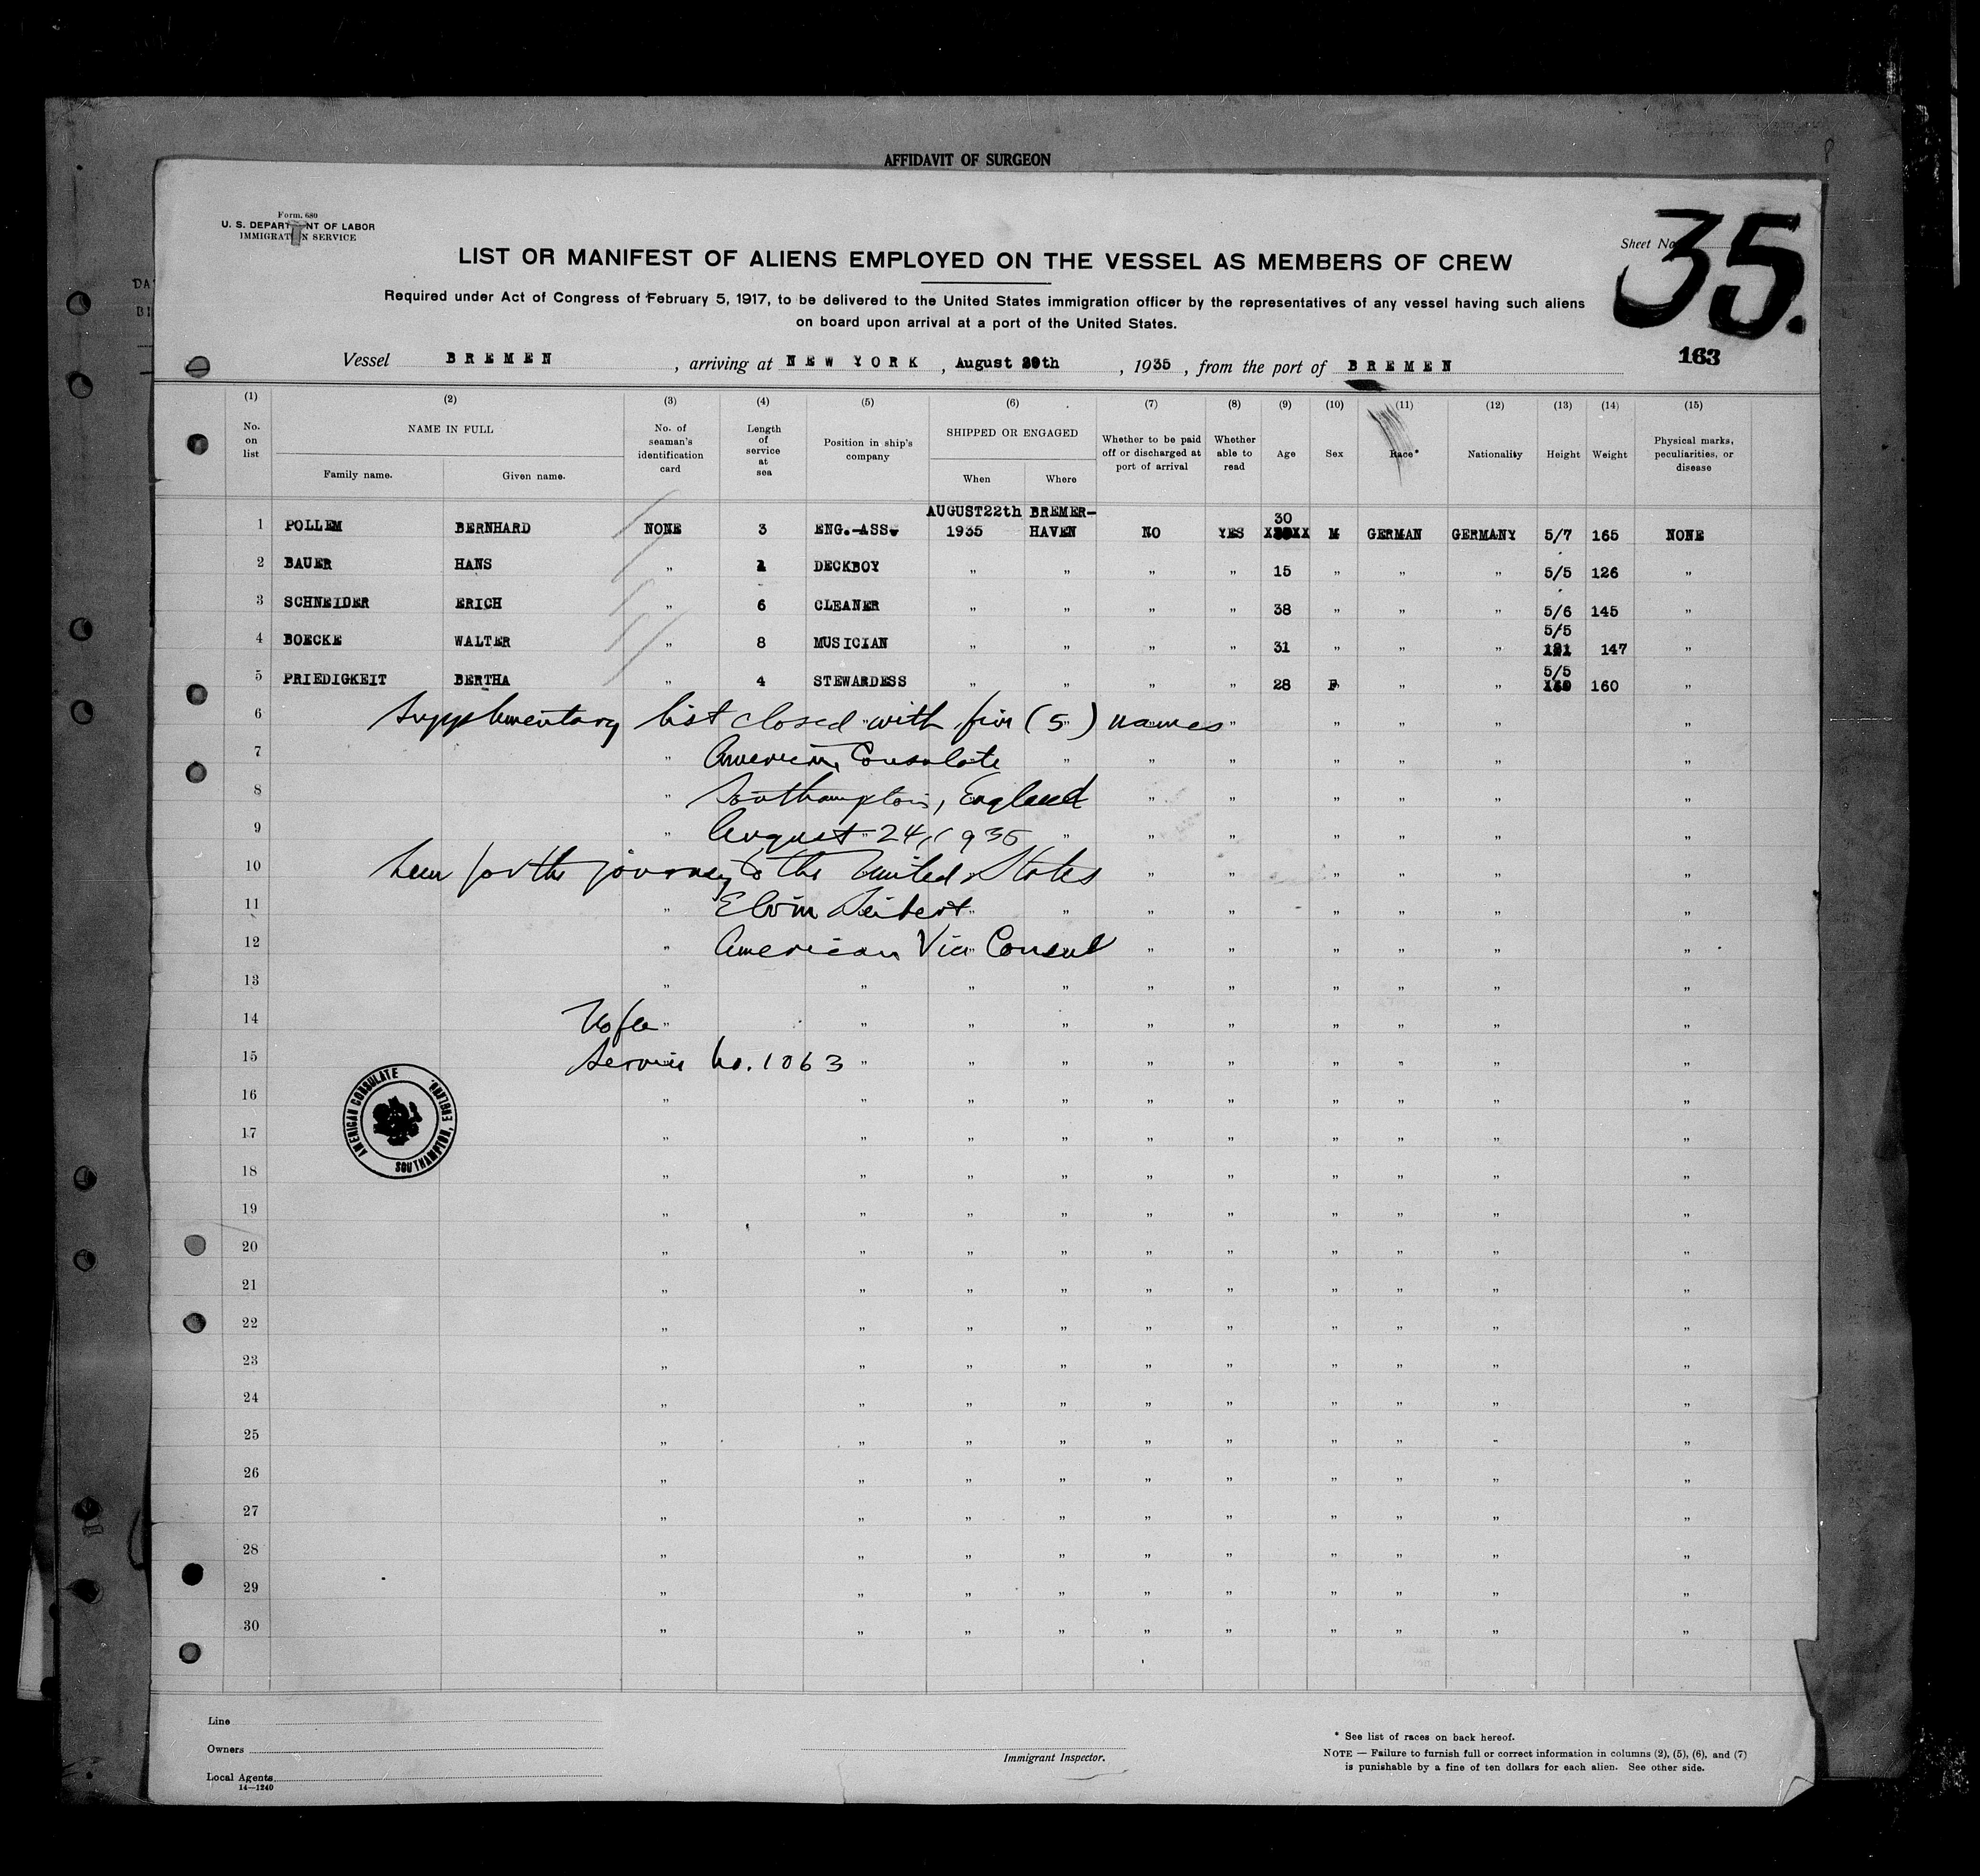 AFFIDAVIT OF SURGEON
Form. 680
U. S. DEPART NT OF LABOR
IMMIGRAT N SERVICE
Sheet No
35.
LIST OR MANIFEST OF ALIENS EMPLOYED ON THE VESSEL AS MEMBERS OF CREW
Required under Act of Congress of February 5, 1917, to be delivered to the United States immigration officer by the representatives of any vessel having such aliens
on board upon arrival at a port of the United States.
163
Vessel BREMEN , arriving at NEW YORK , August th , 1935 , from the port of BREMEN
(1) (2) (3) (4) (5) (6) (7) (8) (9) (10) (11) (12) (13) (14) (15)
No. on list NAME IN FULL Family name. Given name. No. of seaman's identification card Length of service at sea Position in ship's company SHIPPED OR ENGAGED When Where Whether to be paid off or discharged at port of arrival Whether able to read Age Sex Race* Nationality Height Weight Physical marks, peculiarities, or disease
1 POLLEM BERNHARD NONE 3 ENG.-ASS. AUGUST22th 1935 BREMER-HAVEN NO YES 30 M GERMAN GERMANY 5/7 165 NONE
2 BAUER HANS „ DECKBOY „ „ „ „ 15 „ „ „ 5/5 126 „
3 SCHNEIDER ERICH „ 6 CLEANER „ „ „ „ 38 „ „ „ 5/6 145 „
4 BOECKE WALTER „ 8 MUSICIAN „ „ „ „ 31 „ „ „ 5/5 147 „
5 PRIEDIGKEIT BERTHA „ 4 STEWARDESS „ „ „ „ 28 F „ „ 5/5 160 „
6 Supplementary list closed with five (5) names „ „ „ „ „
7 „ American Consulate „ „ „ „ „ „ „
8 „ Southampton, England „ „ „ „ „ „
9 „ August 24, 1935 „ „ „ „ „ „ „
10 Seen for the journey to the United States „ „ „ „ „ „
11 „ Elvin Seibert „ „ „ „ „ „ „ „
12 „ American Vice Consul „ „ „ „ „ „
13 „ „ „ „ „ „ „ „ „ „
14 No fee „ „ „ „ „ „ „ „ „ „
15 Service No. 1063 „ „ „ „ „ „ „ „ „
16 „ „ „ „ „ „ „ „ „ „
17 „ „ „ „ „ „ „ „ „ „
18 „ „ „ „ „ „ „ „ „ „
19 „ „ „ „ „ „ „ „ „ „
20 „ „ „ „ „ „ „ „ „ „
21 „ „ „ „ „ „ „ „ „ „
22 „ „ „ „ „ „ „ „ „ „
23 „ „ „ „ „ „ „ „ „ „
24 „ „ „ „ „ „ „ „ „ „
25 „ „ „ „ „ „ „ „ „ „
26 „ „ „ „ „ „ „ „ „ „
27 „ „ „ „ „ „ „ „ „ „
28 „ „ „ „ „ „ „ „ „ „
29 „ „ „ „ „ „ „ „ „ „
30 „ „ „ „ „ „ „ „ „ „
AMERICAN CONSULATE
SOUTHAMPTON, ENGLAND.
Line
Owners
Local Agents
14—1240
Immigrant Inspector.
* See list of races on back hereof.
NOTE — Failure to furnish full or correct information in columns (2), (5), (6), and (7)
is punishable by a fine of ten dollars for each alien. See other side.